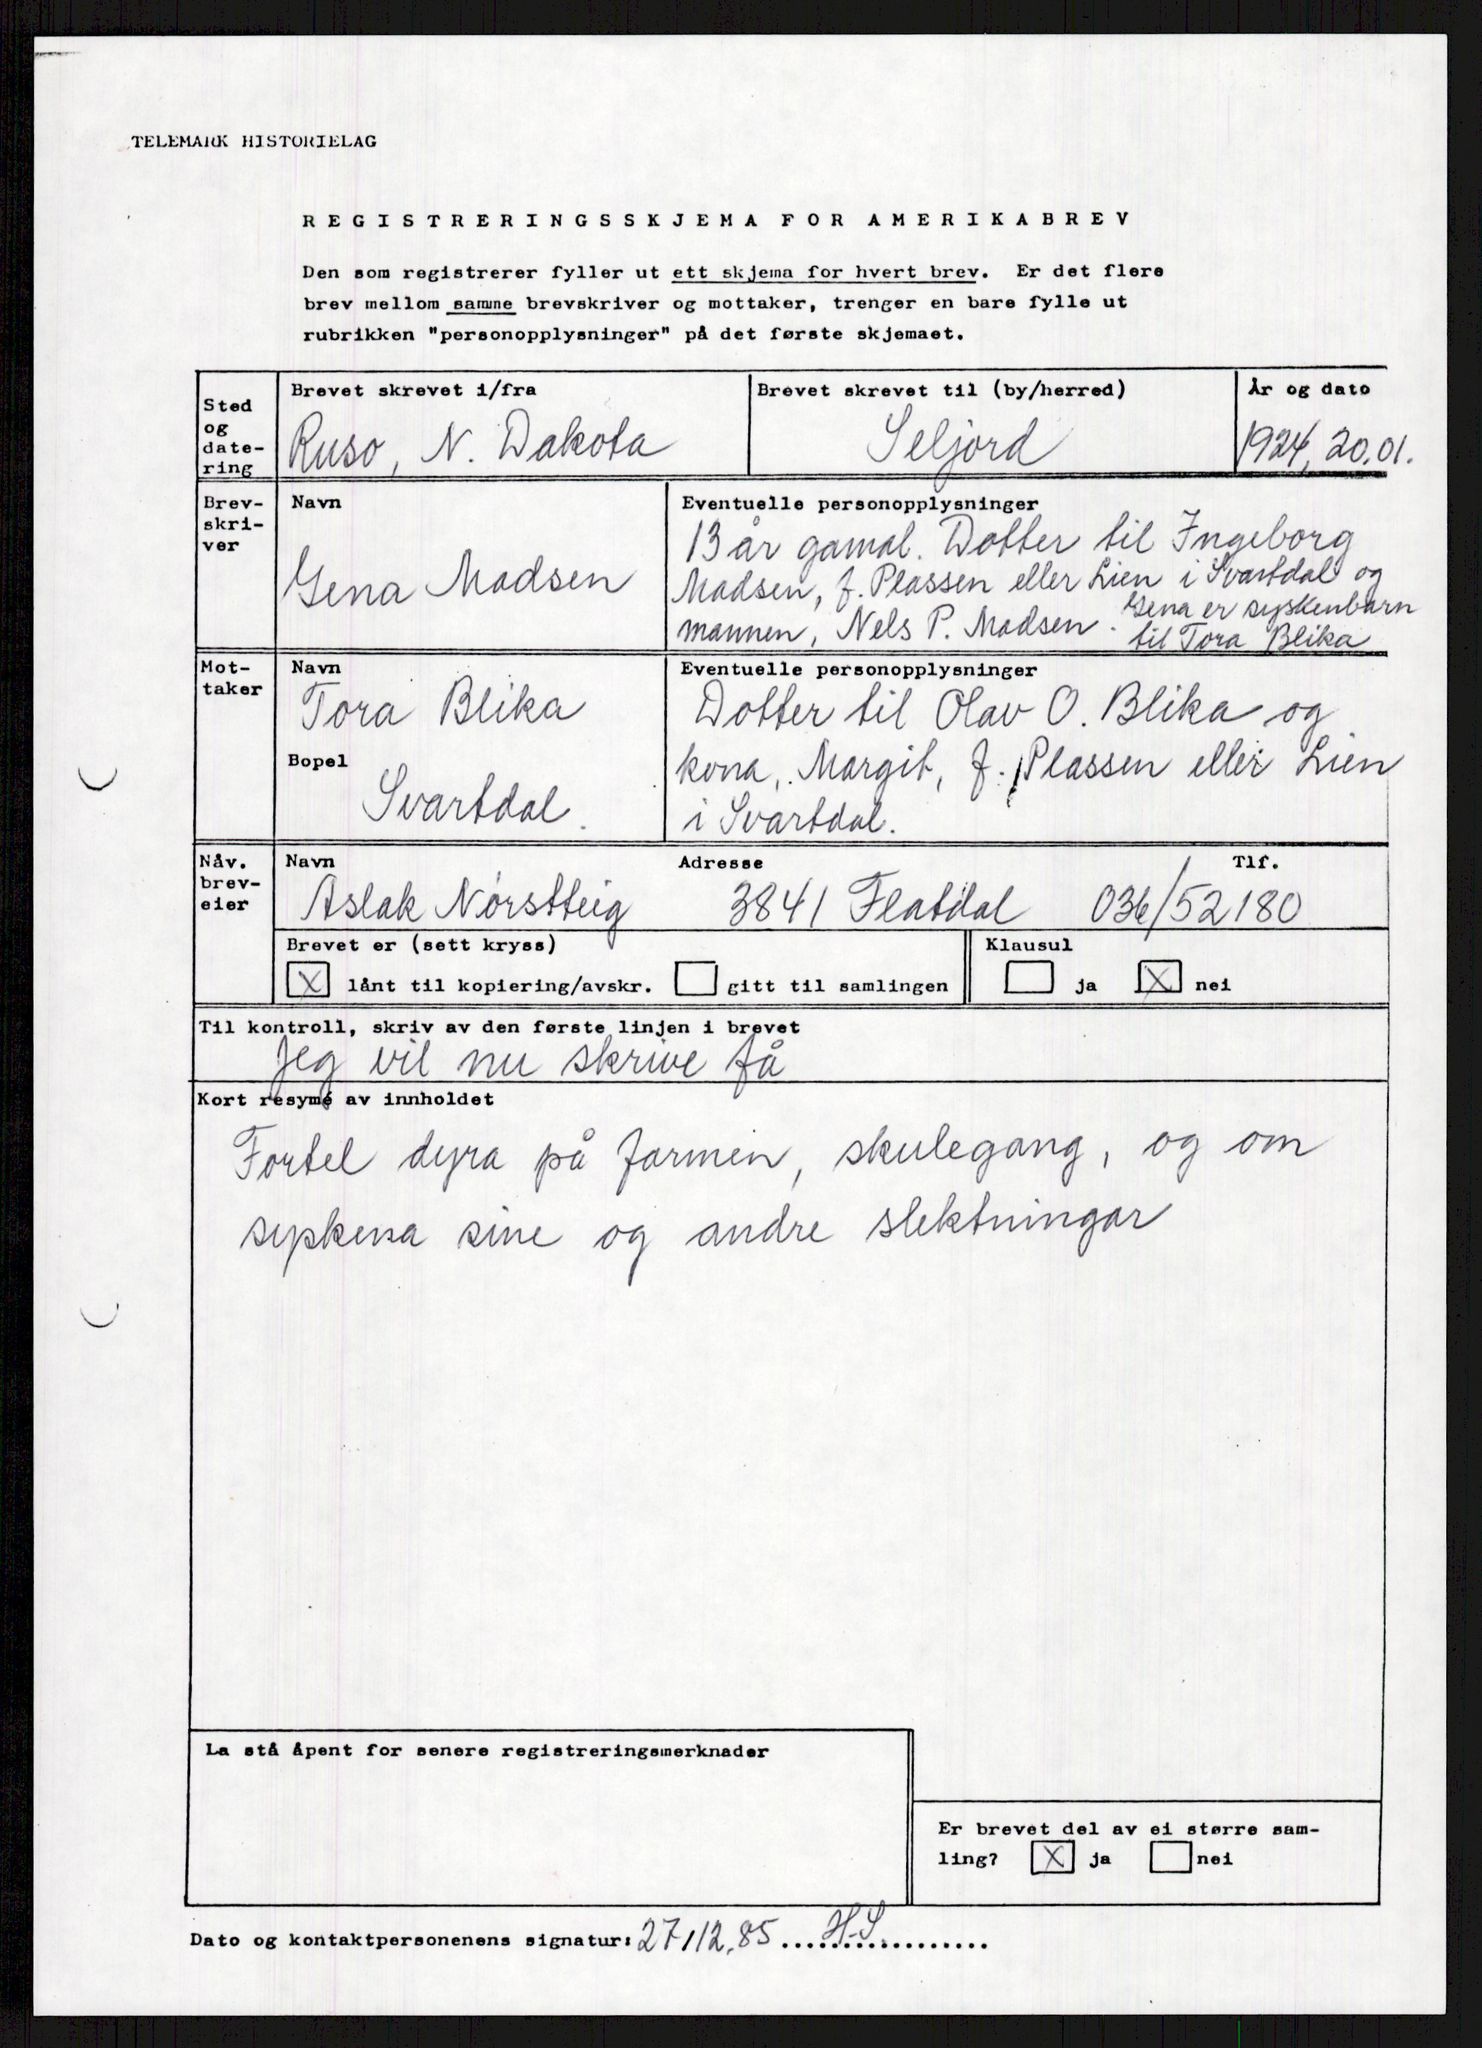 TELEMARK HISTORIELAG
REGISTRERINGSSKJEMA FOR AMERIKABREV
Den som registrerer fyller ut ett skjema for hvert brev. Er det flere
brev mellom samme brevskriver og mottaker, trenger en bare fylle ut
rubrikken "personopplysninger" på det første skjemaet.
Sted
og
date-
ring
Brevet skrevet i/fra
Ruso, N. Dakota
Brevet skrevet til (by/herred)
Seljord
År og dato
1924, 20.01.
Brev-
skri-
ver
Navn
Gena Madsen
Eventuelle personopplysninger
13 år gamal. Dotter til Ingeborg
Madsen, f. Plassen eller Lien i Svartdal og
mannen, Nels P. Madsen. Gena er syskenbarn
til Tora Blika
Mot-
taker
Navn
Tora Blika
Bopel
Svartdal.
Eventuelle personopplysninger
Dotter til Olav O. Blika og
kona, Margit, f. Plassen eller Lien
i Svartdal.
Nåv.
brev-
eier
Navn
Aslak Nørstteig
Adresse
3841 Flatdal
Tlf.
036/52180
Brevet er (sett kryss)
X lånt til kopiering/avskr. gitt til samlingen
Klausul
ja X nei
Til kontroll, skriv av den første linjen i brevet
Jeg vil nu skrive få
Kort resymé av innholdet
Fortel dyra på farmen, skulegang, og om
syskena sine og andre slektningar
La stå åpent for senere registreringsmerknader
Er brevet del av ei større sam-
ling? X ja nei
Dato og kontaktpersonenens signatur: 27/12.85 H.S.